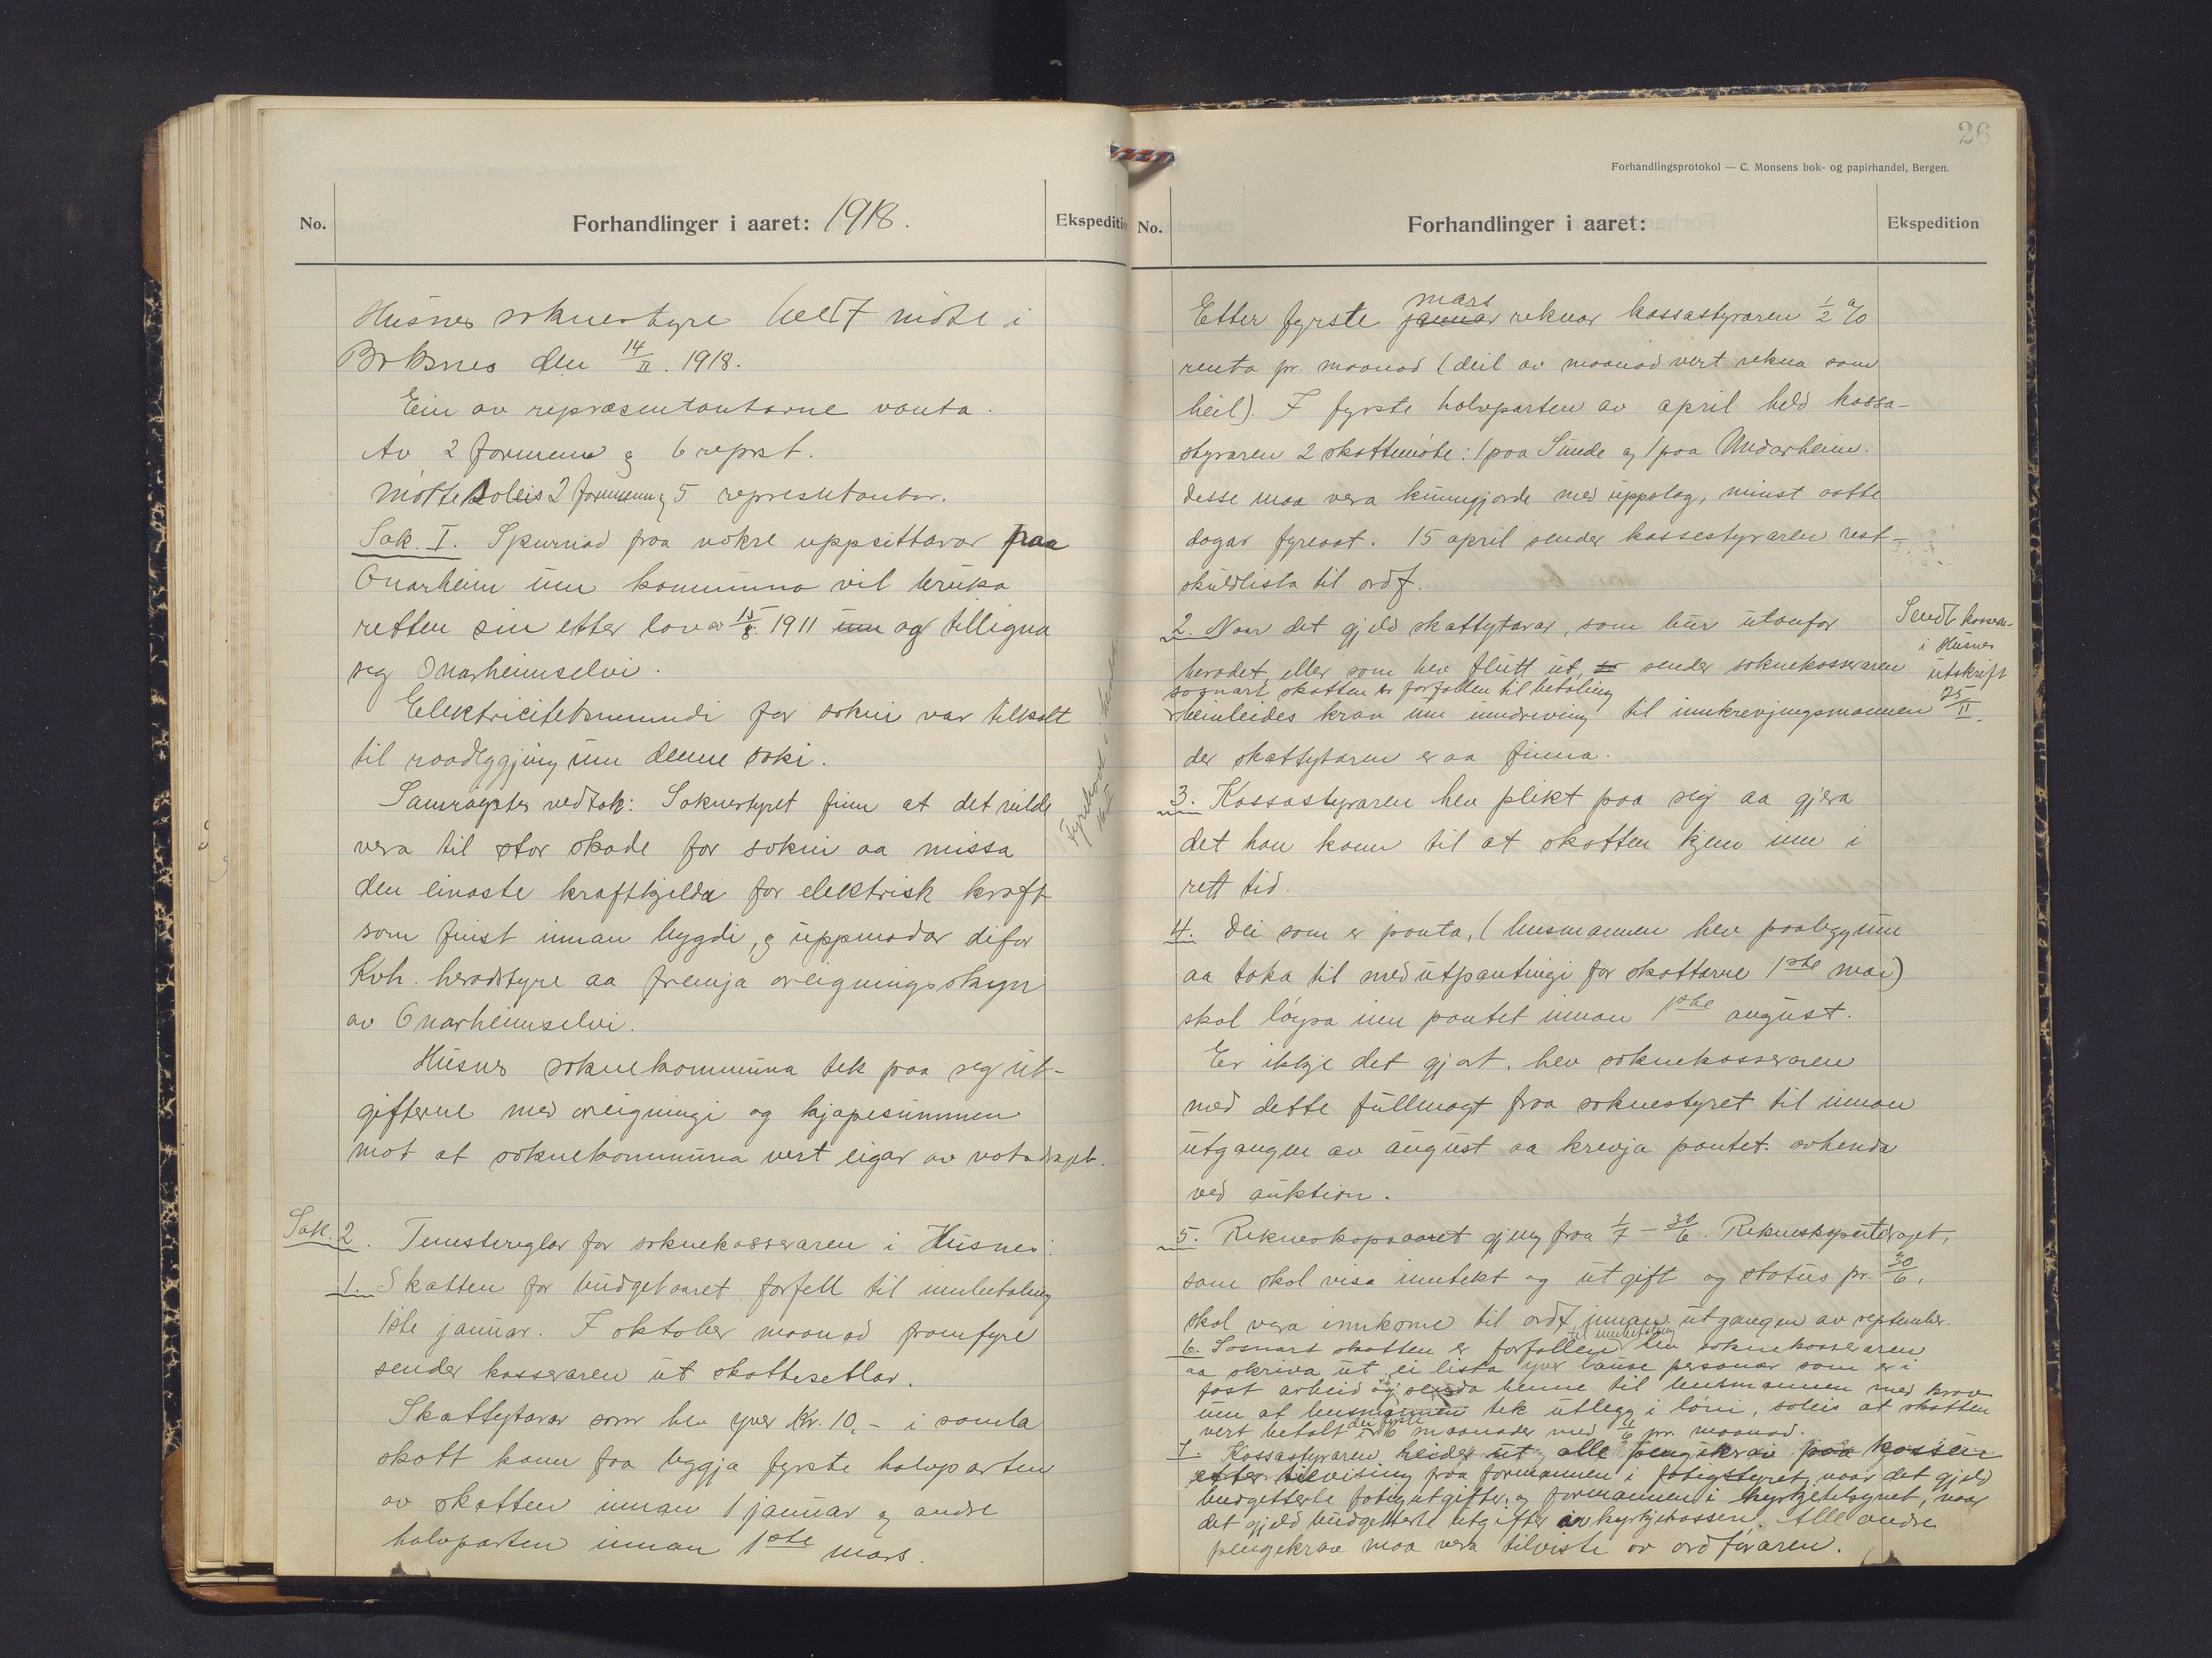 No.
Forhandlinger i aaret: 1918.
Ekspedition
Husnes soknestyre heldt møte i
den 14/II. 1918.
Ein av repræsentantarne vanta.
Av 2 formenn og 6 reprst.
møtte soleis 2 formenn og 5 representantar.
Sak. I. Spurnad fraa nokre uppsittarar paa
Onarheim um kommuna vil bruka
retten sin etter lov av 15/8. 1911 um og tilligna
seg Onarheimselvi.
Elektricitetsnemndi for sokni var tilkalt
til raadleggjing um denne saki.
Samrøystes vedtok: Soknestyret finn at det vilde
vera til stor skade for sokni aa missa
den einaste kraftkjelda for elektrisk kraft
som finst innan bygdi, og uppmodar difor
Kvh. heradstyre aa fremja oreigningsskyn
av Onarheimselvi.
Husnes soknekommuna tek paa seg ut-
gifterne med oreigningi og kjøpesummen
mot at soknekommuna vert eigar av vatsdraget.
Sak. 2. Tenestereglar for soknekasseraren i Husnes:
1. Skatten for budgetaaret forfell til innbetaling
1ste januar. I oktober maanad framfyre
sender kasseraren ut skattesetlar.
Skattytarar som hev yver Kr. 10,- i samla
skatt kann faa leggja fyrste halvparten
av skatten innan 1 januar og andre
halvparten innan 1ste mars.
26
Forhandlingsprotokol — C. Monsens bok- og papirhandel, Bergen.
No.
Forhandlinger i aaret:
Ekspedition
mars
Etter fyrste januar reknar kassastyraren ½ %
renta pr. maanad (deil av maanad vert rekna som
heil). I fyrste halvparten av april held kassa-
styraren 2 skattemøte: 1 paa Sunde og 1 paa Undarheim.
desse maa vera kunngjorde med uppslag, minst aatte
dagar fyreaat. 15 april sender kassestyraren rest-
skuldlista til ordf.
2. Naar det gjeld skattytarar, som bur utanfor
heradet, eller som hev flutt ut, so sender soknekasseraren
sosnart skatten er forfallen til betaling
beinleides krav um inndriving til innkrevjingsmannen
der skattytaren er aa finna.
Sendt kasserar
i Husnes
utskrift
25/II.
3. Kassastyraren hev plikt paa seg aa gjera
det han kann til at skatten kjem inn i
rett tid.
4. Dei som er panta, (lensmannen hev paalegg um
aa taka til med utpantingi for skattarne 1ste mai)
skal løysa inn pantet innan 1ste august.
Er ikkje det gjort, hev soknekasseraren
med dette fullmagt fraa soknestyret til innan
utgangen av august aa krevja pantet avhenda
ved auktion.
5. Rekneskapsaaret gjeng fraa 1/7 – 30/6. Rekneskapsutdraget,
som skal visa inntekt og utgift og status pr. 30/6,
skal vera innkome til ordf. innan utgangen av september.
til innbetaling
6. Sosnart skatten er forfallen hev soknekasseraren
aa skriva ut ei lista yver lause personar som er i
fast arbeid og senda henne til lensmannen med krav
um at lensmannen tek utlegg i løni, soleis at skatten
dei fyrste
vert betalt i 6 maanader med 1/6 pr. maanad.
7. Kassastyraren greider ut alle pengekrav paa kassen
etter tilvising fraa formannen i fatigstyret, naar det gjeld
budgetterte fatigutgifter, og formannen i kyrkjetilsynet, naar
det gjeld budgetterte utgifter av kyrkjekassen. Alle andre
pengekrav maa vera tilviste av ordføraren.